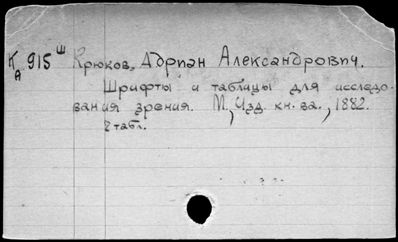 К 915 ш Крюков, Адриан Александрович.
А
Шрифты и таблицы для исследо-
вания зрения. М., Изд. кн. ва., 1882.
8 табл.